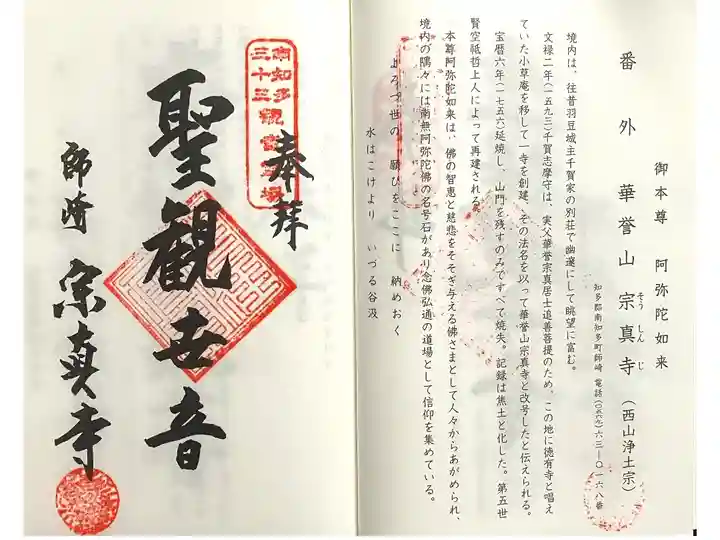 番外 華誉山 宗真寺(西山浄土宗)
そうしんじ
御本尊 阿弥陀如来
知多郡南知多町師崎 電話(〇五六九)六三―〇一六八番
境内は、往昔羽豆城主千賀家の別荘で幽邃にして眺望に富む。
文禄二年(一五九三)千賀志摩守は、実父華誉宗真居士追善菩提のため、この地に徳有寺と唱え
ていた小草庵を移して一寺を創建、その法名を以って華誉山宗真寺と改号したと伝えられる。
宝暦六年(一七五六)延焼し、山門を残すのみですべて焼失。記録は焦土と化した。第五世
賢空祇哲上人によって再建される。
本尊阿弥陀如来は、佛の智恵と慈悲をそそぎ与える佛さまとして人々からあがめられ、
境内の隅々には南無阿弥陀佛の名号石があり念佛弘通の道場として信仰を集めている。
よろづ世の 願ひをここに 納めおく
水はこけより いづる谷汲
南知多
三十三
観音霊場
奉拝
聖観世音
師崎 宗真寺